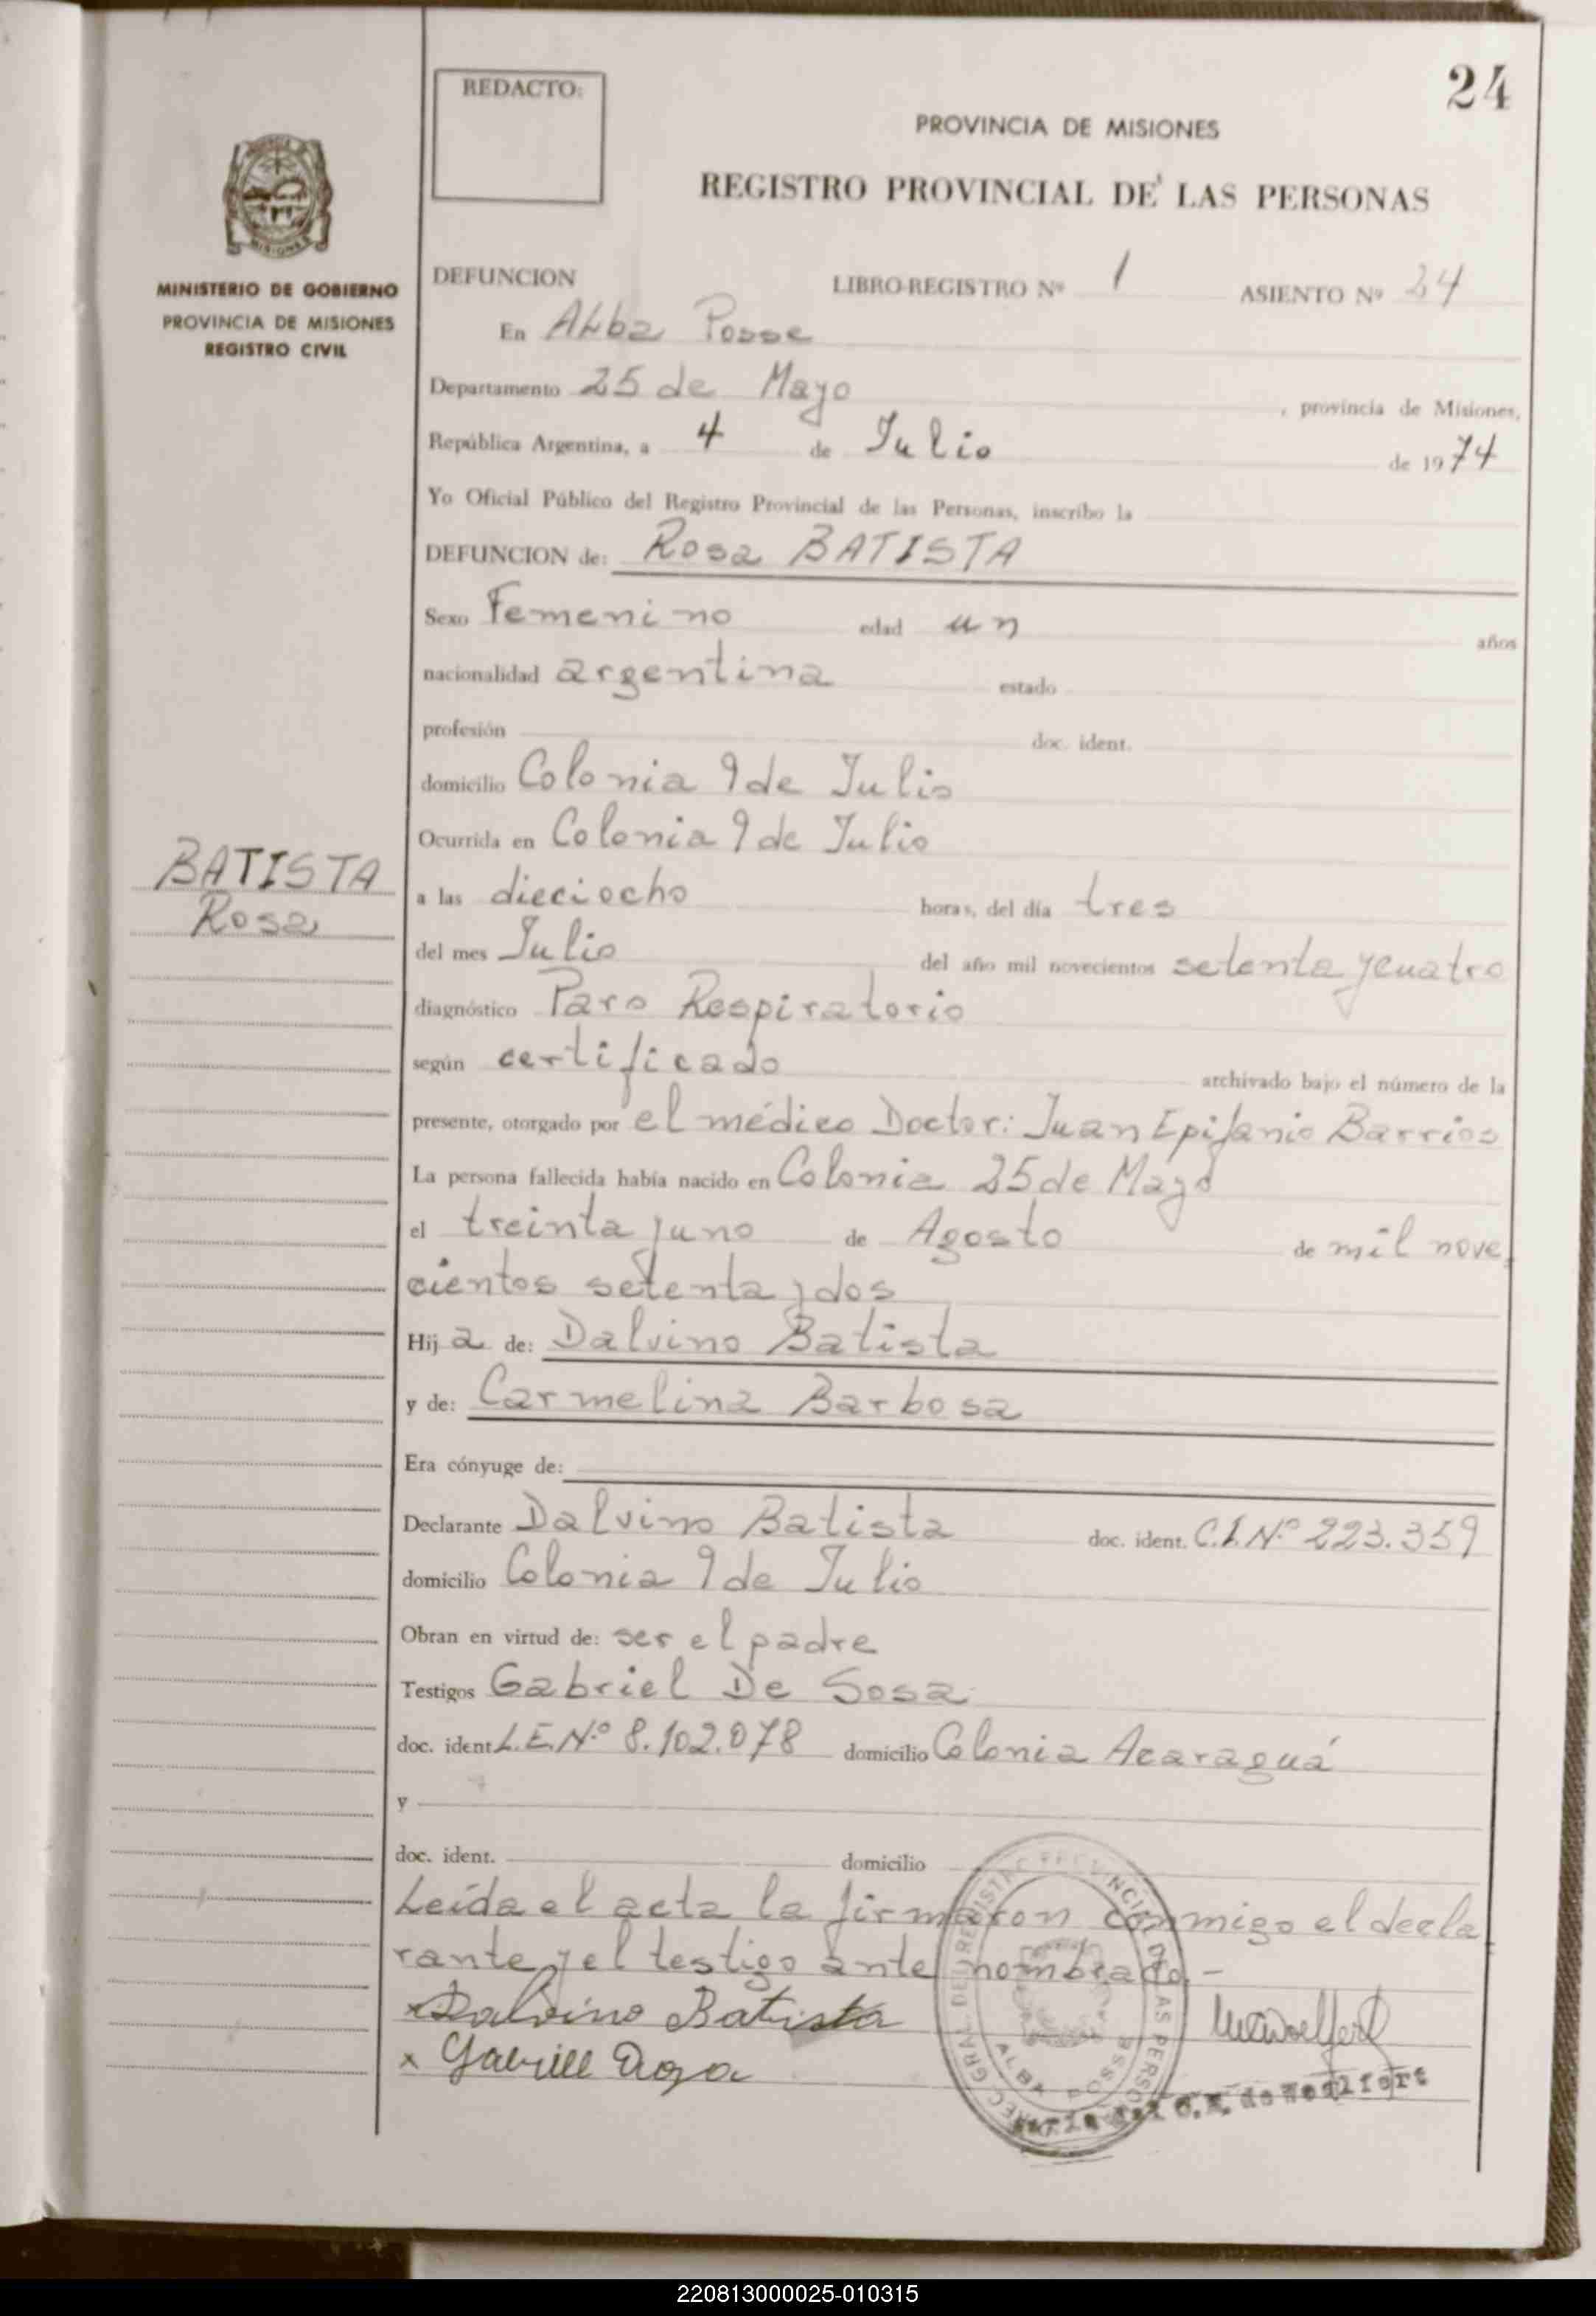 24
REDACTO:
PROVINCIA DE MISIONES
REGISTRO PROVINCIAL DE LAS PERSONAS
MISIONES
MINISTERIO DE GOBIERNO
PROVINCIA DE MISIONES
REGISTRO CIVIL
DEFUNCION LIBRO-REGISTRO Nº 1 ASIENTO Nº 24
En Alba Posse
Departamento 25 de Mayo , provincia de Misiones,
República Argentina, a 4 de Julio de 1974
Yo Oficial Público del Registro Provincial de las Personas, inscribo la
DEFUNCION de: Rosa BATISTA
Sexo Femenino edad un años
nacionalidad argentina estado
profesión doc. ident.
domicilio Colonia 9 de Julio
Ocurrida en Colonia 9 de Julio
BATISTA
Rosa
a las dieciocho horas, del día tres
del mes Julio del año mil novecientos setenta y cuatro
diagnóstico Paro Respiratorio
según certificado archivado bajo el número de la
presente, otorgado por el médico Doctor: Juan Epifanio Barrios
La persona fallecida había nacido en Colonia 25 de Mayo
el treinta y uno de Agosto de mil nove
cientos setenta y dos
Hija de: Dalvino Batista
y de: Carmelina Barbosa
Era cónyuge de:
Declarante Dalvino Batista doc. ident. C.I.Nº 223.359
domicilio Colonia 9 de Julio
Obran en virtud de: ser el padre
Testigos Gabriel De Sosa
doc. ident L.E.Nº 8.102.078 domicilio Colonia Acaraguá
y
doc. ident. domicilio
Leída el acta la firmaron conmigo el decla
rante y el testigo ante nombrado.-
x Dalvino Batista
x
ALBA POSSE
de Woelfert
220813000025-010315